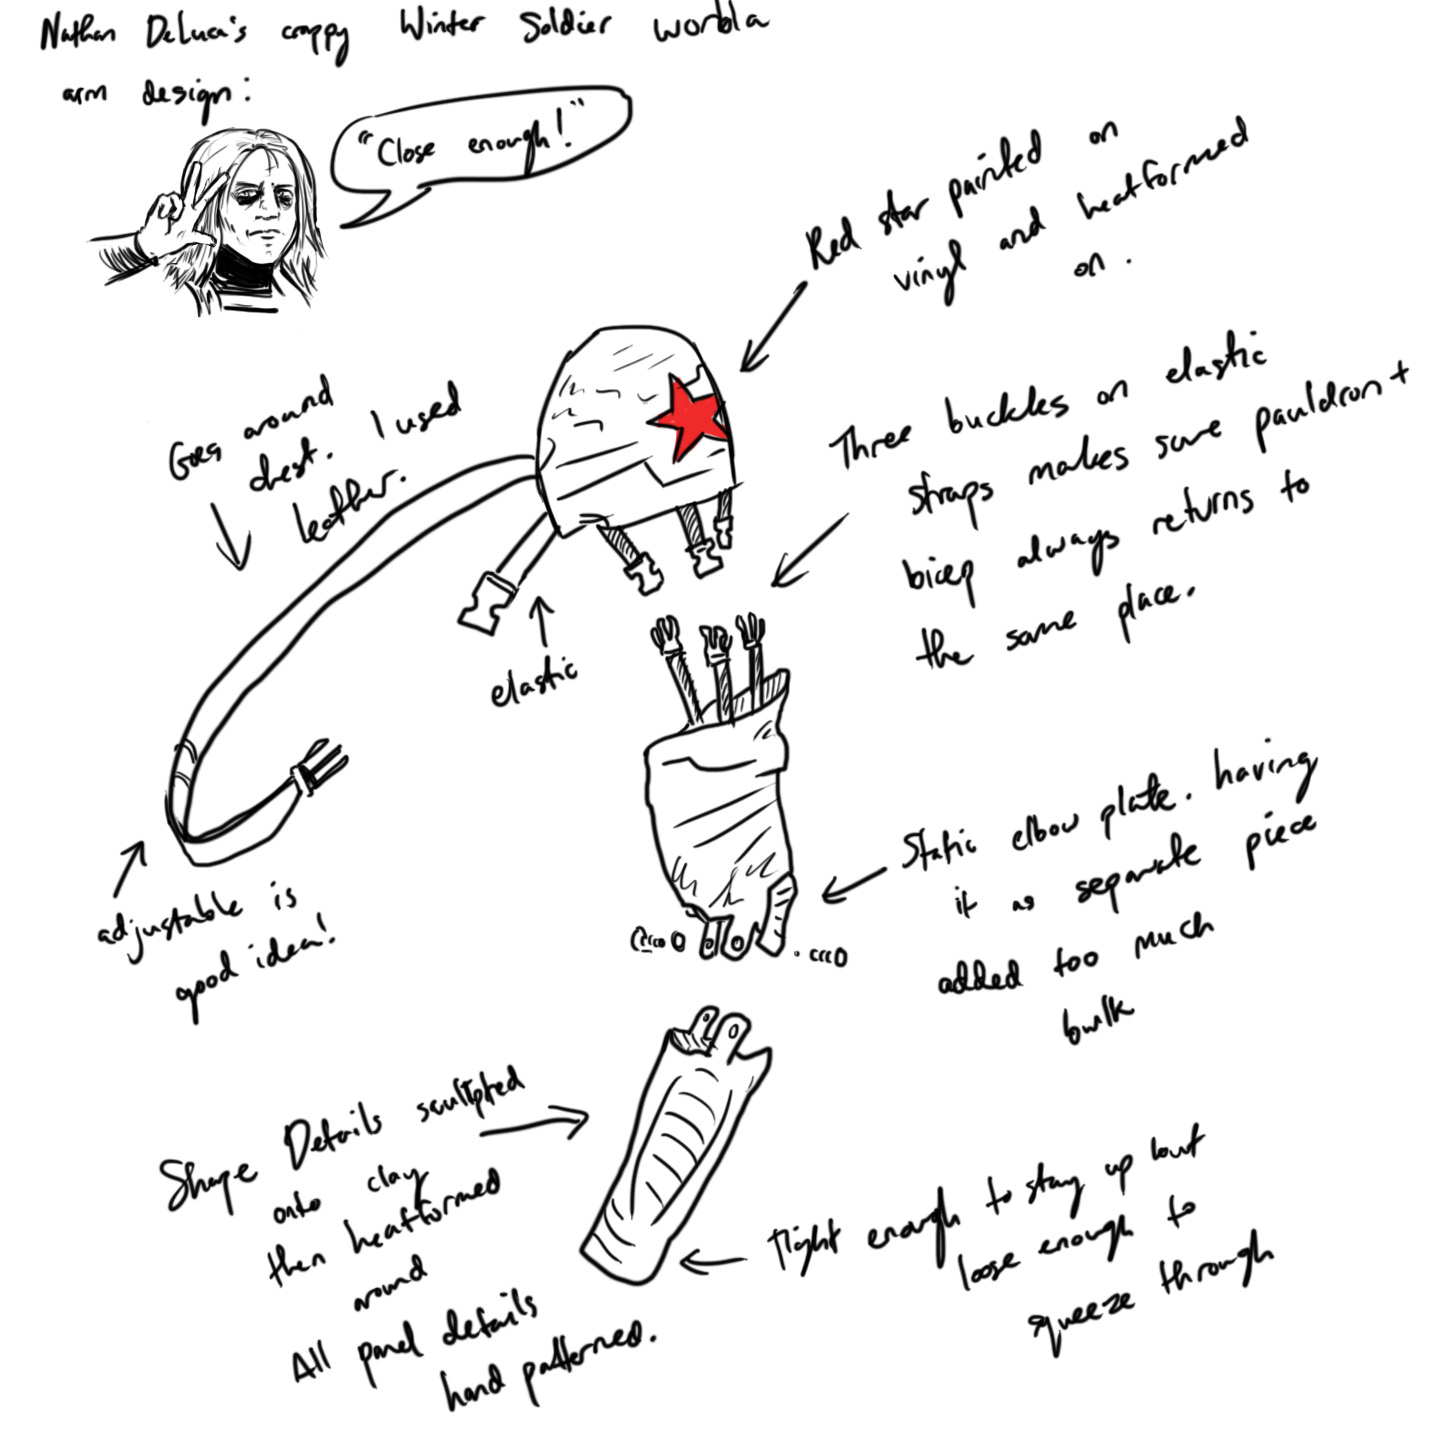 Nathan DeLuca's crappy Winter Soldier worbla
arm design:
"Close enough!"
Red star painted on
vinyl and heatformed
on.
Goes around
chest. I used
leather.
Three buckles on elastic
straps makes sure pauldron +
bicep always returns to
the same place.
elastic
adjustable is
good idea!
Static elbow plate. having
it as separate piece
added too much
bulk
Shape Details sculpted
onto clay
then heatformed
around
All panel details
hand patterned.
Tight enough to stay up but
loose enough to
squeeze through